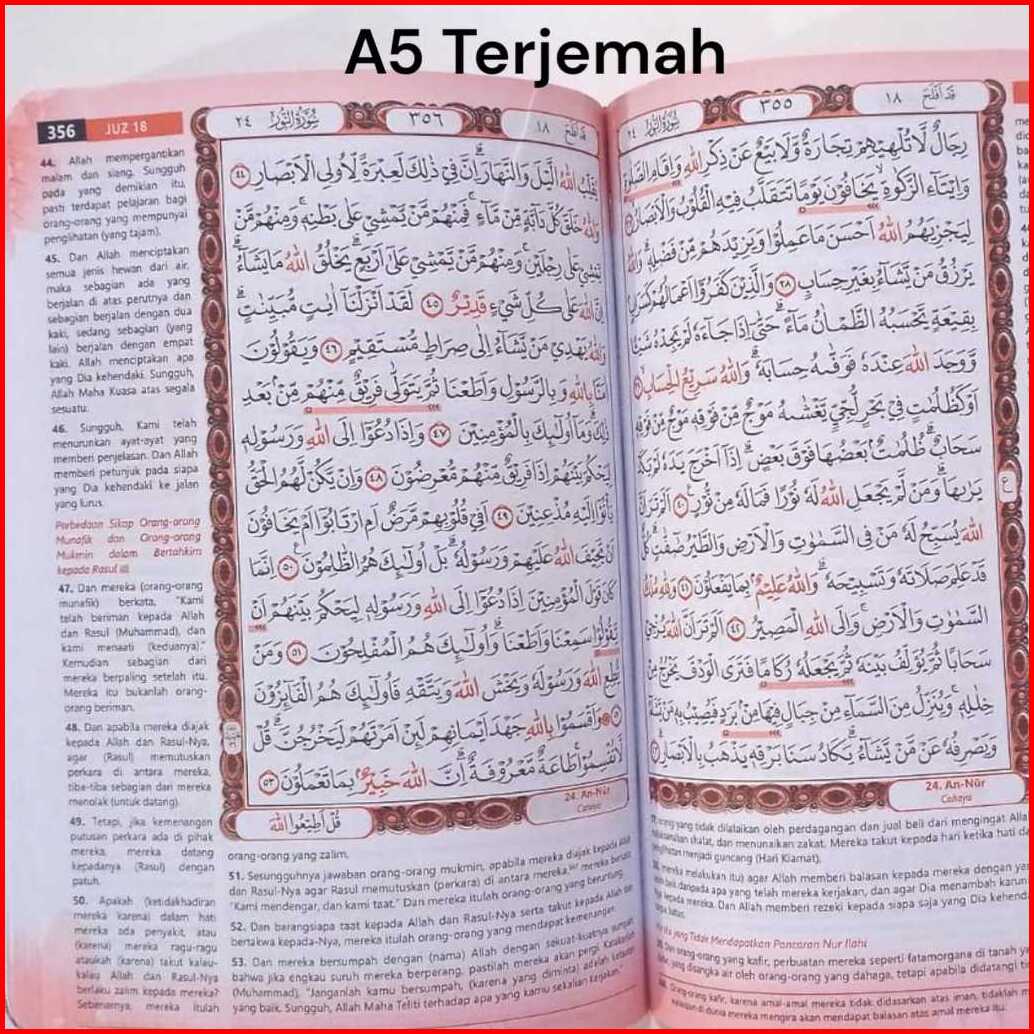 A5 Terjemah
١٨ قَدْ اَفْلَحَ
٣٥٥
سُوْرَةُ النُّوْرِ ٢٤
رِجَالٌ لَّا تُلْهِيْهِمْ تِجَارَةٌ وَّلَا بَيْعٌ عَنْ ذِكْرِ اللّٰهِ وَاِقَامِ الصَّلٰوةِ
وَاِيْتَاۤءِ الزَّكٰوةِ يَخَافُوْنَ يَوْمًا تَتَقَلَّبُ فِيْهِ الْقُلُوْبُ وَالْاَبْصَارُ
لِيَجْزِيَهُمُ اللّٰهُ اَحْسَنَ مَا عَمِلُوْا وَيَزِيْدَهُمْ مِّنْ فَضْلِهٖ وَاللّٰهُ
يَرْزُقُ مَنْ يَّشَاۤءُ بِغَيْرِ حِسَابٍ ٣٨ وَالَّذِيْنَ كَفَرُوْٓا اَعْمَالُهُمْ كَسَرَابٍ
بِقِيْعَةٍ يَّحْسَبُهُ الظَّمْاٰنُ مَاۤءً حَتّٰٓى اِذَا جَاۤءَهٗ لَمْ يَجِدْهُ شَيْـًٔا
وَّوَجَدَ اللّٰهَ عِنْدَهٗ فَوَفّٰىهُ حِسَابَهٗ وَاللّٰهُ سَرِيْعُ الْحِسَابِ
اَوْ كَظُلُمٰتٍ فِيْ بَحْرٍ لُّجِّيٍّ يَّغْشٰىهُ مَوْجٌ مِّنْ فَوْقِهٖ مَوْجٌ مِّنْ فَوْقِهٖ
سَحَابٌ ظُلُمٰتٌ بَعْضُهَا فَوْقَ بَعْضٍ اِذَآ اَخْرَجَ يَدَهٗ لَمْ يَكَدْ
يَرٰىهَا وَمَنْ لَّمْ يَجْعَلِ اللّٰهُ لَهٗ نُوْرًا فَمَا لَهٗ مِنْ نُّوْرٍ ٤٠ اَلَمْ تَرَ اَنَّ
اللّٰهَ يُسَبِّحُ لَهٗ مَنْ فِى السَّمٰوٰتِ وَالْاَرْضِ وَالطَّيْرُ صٰۤفّٰتٍ كُلٌّ
قَدْ عَلِمَ صَلَاتَهٗ وَتَسْبِيْحَهٗ وَاللّٰهُ عَلِيْمٌ بِمَا يَفْعَلُوْنَ ٤١ وَلِلّٰهِ مُلْكُ
السَّمٰوٰتِ وَالْاَرْضِ وَاِلَى اللّٰهِ الْمَصِيْرُ ٤٢ اَلَمْ تَرَ اَنَّ اللّٰهَ يُزْجِيْ
سَحَابًا ثُمَّ يُؤَلِّفُ بَيْنَهٗ ثُمَّ يَجْعَلُهٗ رُكَامًا فَتَرَى الْوَدْقَ يَخْرُجُ مِنْ
خِلٰلِهٖ وَيُنَزِّلُ مِنَ السَّمَاۤءِ مِنْ جِبَالٍ فِيْهَا مِنْ بَرَدٍ فَيُصِيْبُ بِهٖ مَنْ يَّشَاۤءُ
وَيَصْرِفُهٗ عَنْ مَّنْ يَّشَاۤءُ يَكَادُ سَنَا بَرْقِهٖ يَذْهَبُ بِالْاَبْصَارِ ٤٣
24. An-Nūr
Cahaya
orang yang tidak dilalaikan oleh perdagangan dan jual beli dari mengingat Allah,
melaksanakan shalat, dan menunaikan zakat. Mereka takut kepada hari ketika hati dan
penglihatan menjadi guncang (Hari Kiamat).
mereka melakukan itu) agar Allah memberi balasan kepada mereka dengan yang
lebih baik daripada apa yang telah mereka kerjakan, dan agar Dia menambah karunia-
Nya kepada mereka. Dan Allah memberi rezeki kepada siapa saja yang Dia kehendaki
tanpa batas.
yang Tidak Mendapatkan Pancaran Nur Ilahi
Dan orang-orang yang kafir, perbuatan mereka seperti fatamorgana di tanah yang
datar, yang disangka air oleh orang-orang yang dahaga, tetapi apabila didatangi tidak
Orang-orang kafir, karena amal-amal mereka tidak didasarkan atas iman, tidaklah
di dunia mereka mengira akan mendapat balasan atas amal mereka itu.
356 JUZ 18
١٨ قَدْ اَفْلَحَ
٣٥٦
سُوْرَةُ النُّوْرِ ٢٤
يُقَلِّبُ اللّٰهُ الَّيْلَ وَالنَّهَارَ اِنَّ فِيْ ذٰلِكَ لَعِبْرَةً لِّاُولِى الْاَبْصَارِ ٤٤
وَاللّٰهُ خَلَقَ كُلَّ دَاۤبَّةٍ مِّنْ مَّاۤءٍ فَمِنْهُمْ مَّنْ يَّمْشِيْ عَلٰى بَطْنِهٖ وَمِنْهُمْ مَّنْ
يَّمْشِيْ عَلٰى رِجْلَيْنِ وَمِنْهُمْ مَّنْ يَّمْشِيْ عَلٰٓى اَرْبَعٍ يَخْلُقُ اللّٰهُ مَا يَشَاۤءُ
اِنَّ اللّٰهَ عَلٰى كُلِّ شَيْءٍ قَدِيْرٌ ٤٥ لَقَدْ اَنْزَلْنَآ اٰيٰتٍ مُّبَيِّنٰتٍ
وَاللّٰهُ يَهْدِيْ مَنْ يَّشَاۤءُ اِلٰى صِرَاطٍ مُّسْتَقِيْمٍ ٤٦ وَيَقُوْلُوْنَ
اٰمَنَّا بِاللّٰهِ وَبِالرَّسُوْلِ وَاَطَعْنَا ثُمَّ يَتَوَلّٰى فَرِيْقٌ مِّنْهُمْ مِّنْ بَعْدِ
ذٰلِكَ وَمَآ اُولٰۤىِٕكَ بِالْمُؤْمِنِيْنَ ٤٧ وَاِذَا دُعُوْٓا اِلَى اللّٰهِ وَرَسُوْلِهٖ
لِيَحْكُمَ بَيْنَهُمْ اِذَا فَرِيْقٌ مِّنْهُمْ مُّعْرِضُوْنَ ٤٨ وَاِنْ يَّكُنْ لَّهُمُ الْحَقُّ
يَأْتُوْٓا اِلَيْهِ مُذْعِنِيْنَ ٤٩ اَفِيْ قُلُوْبِهِمْ مَّرَضٌ اَمِ ارْتَابُوْٓا اَمْ يَخَافُوْنَ
اَنْ يَّحِيْفَ اللّٰهُ عَلَيْهِمْ وَرَسُوْلُهٗ بَلْ اُولٰۤىِٕكَ هُمُ الظّٰلِمُوْنَ ٥٠ اِنَّمَا
كَانَ قَوْلَ الْمُؤْمِنِيْنَ اِذَا دُعُوْٓا اِلَى اللّٰهِ وَرَسُوْلِهٖ لِيَحْكُمَ بَيْنَهُمْ اَنْ
يَّقُوْلُوْا سَمِعْنَا وَاَطَعْنَا وَاُولٰۤىِٕكَ هُمُ الْمُفْلِحُوْنَ ٥١ وَمَنْ
يُّطِعِ اللّٰهَ وَرَسُوْلَهٗ وَيَخْشَ اللّٰهَ وَيَتَّقْهِ فَاُولٰۤىِٕكَ هُمُ الْفَاۤىِٕزُوْنَ
وَاَقْسَمُوْا بِاللّٰهِ جَهْدَ اَيْمَانِهِمْ لَىِٕنْ اَمَرْتَهُمْ لَيَخْرُجُنَّ قُلْ
لَّا تُقْسِمُوْا طَاعَةٌ مَّعْرُوْفَةٌ اِنَّ اللّٰهَ خَبِيْرٌ بِمَا تَعْمَلُوْنَ ٥٣
24. An-Nūr
Cahaya
قُلْ اَطِيْعُوا اللّٰهَ
44. Allah mempergantikan
malam dan siang. Sungguh
pada yang demikian itu,
pasti terdapat pelajaran bagi
orang-orang yang mempunyai
penglihatan (yang tajam).
45. Dan Allah menciptakan
semua jenis hewan dari air,
maka sebagian ada yang
berjalan di atas perutnya dan
sebagian berjalan dengan dua
kaki, sedang sebagian (yang
lain) berjalan dengan empat
kaki. Allah menciptakan apa
yang Dia kehendaki. Sungguh,
Allah Maha Kuasa atas segala
sesuatu.
46. Sungguh, Kami telah
menurunkan ayat-ayat yang
memberi penjelasan. Dan Allah
memberi petunjuk pada siapa
yang Dia kehendaki ke jalan
yang lurus.
Perbedaan Sikap Orang-orang
Munafik dan Orang-orang
Mukmin dalam Bertahkim
kepada Rasul ﷺ
47. Dan mereka (orang-orang
munafik) berkata, "Kami
telah beriman kepada Allah
dan Rasul (Muhammad), dan
kami menaati (keduanya)."
Kemudian sebagian dari
mereka berpaling setelah itu.
Mereka itu bukanlah orang-
orang beriman.
48. Dan apabila mereka diajak
kepada Allah dan Rasul-Nya,
agar (Rasul) memutuskan
perkara di antara mereka,
tiba-tiba sebagian dari mereka
menolak (untuk datang).
49. Tetapi, jika kemenangan
putusan perkara ada di pihak
mereka, mereka datang
kepadanya (Rasul) dengan
patuh.
50. Apakah (ketidakhadiran
mereka karena) dalam hati
mereka ada penyakit, atau
(karena) mereka ragu-ragu
ataukah (karena) takut kalau-
kalau Allah dan Rasul-Nya
berlaku zalim kepada mereka?
Sebenarnya, mereka itulah
orang-orang yang zalim.
51. Sesungguhnya jawaban orang-orang mukmin, apabila mereka diajak kepada Allah
dan Rasul-Nya agar Rasul memutuskan (perkara) di antara mereka, mereka berkata,
"Kami mendengar, dan kami taat." Dan mereka itulah orang-orang yang beruntung.
52. Dan barangsiapa taat kepada Allah dan Rasul-Nya serta takut kepada Allah dan
bertakwa kepada-Nya, mereka itulah orang-orang yang mendapat kemenangan.
53. Dan mereka bersumpah dengan (nama) Allah dengan sekuat-kuatnya sumpah,
bahwa jika engkau suruh mereka berperang, pastilah mereka akan pergi. Katakanlah
(Muhammad), "Janganlah kamu bersumpah, (karena yang diminta) adalah ketaatan
yang baik. Sungguh, Allah Maha Teliti terhadap apa yang kamu sekalian kerjakan."